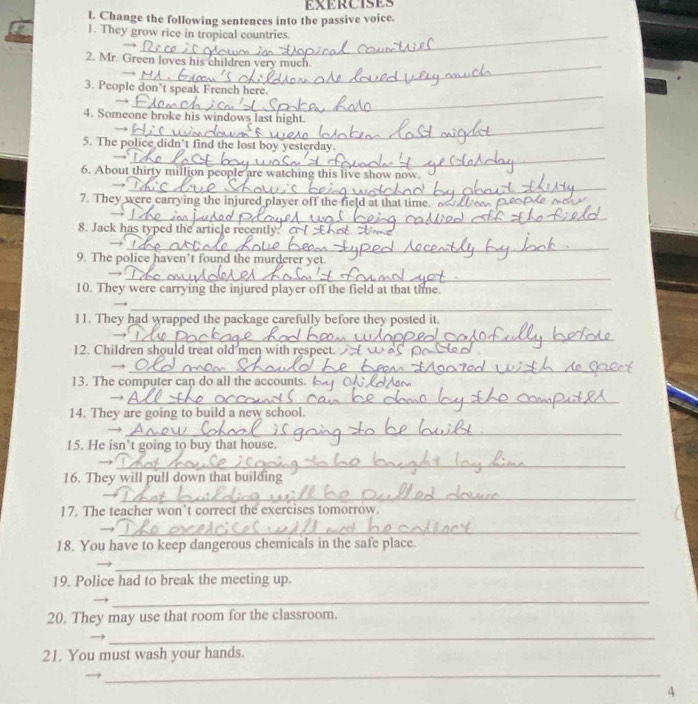 EXERCISES
I. Change the following sentences into the passive voice.
1. They grow rice in tropical countries.
→ Rice is grown in tropical countries
2. Mr. Green loves his children very much.
→ Mr. Green's children are loved very much
3. People don't speak French here.
→ French isn't spoken here
4. Someone broke his windows last night.
→ His windows were broken last night
5. The police didn't find the lost boy yesterday.
→ The lost boy wasn't yesterday.
6. About thirty million people are watching this live show now.
→ This live show is being watched by about thirty
7. They were carrying the injured player off the field at that time. million people now
→ The injured player was being carried off the field
8. Jack has typed the article recently. at that time
→ The article have been typed recently by Jack
9. The police haven't found the murderer yet.
→ The hasn't found yet
10. They were carrying the injured player off the field at that time.
→
11. They had wrapped the package carefully before they posted it.
→ The package had been wrapped carefully before
12. Children should treat old men with respect. it was posted.
→ Old men should be been treated with respect
13. The computer can do all the accounts. by children
→ All the accounts can be done by the computer
14. They are going to build a new school.
→ A new school is going to be built.
15. He isn't going to buy that house.
→ That house is going to be bought by him
16. They will pull down that building
→ That building will be pulled down
17. The teacher won't correct the exercises tomorrow.
→ The exercises will not be
18. You have to keep dangerous chemicals in the safe place.
→
19. Police had to break the meeting up.
→
20. They may use that room for the classroom.
→
21. You must wash your hands.
→
4